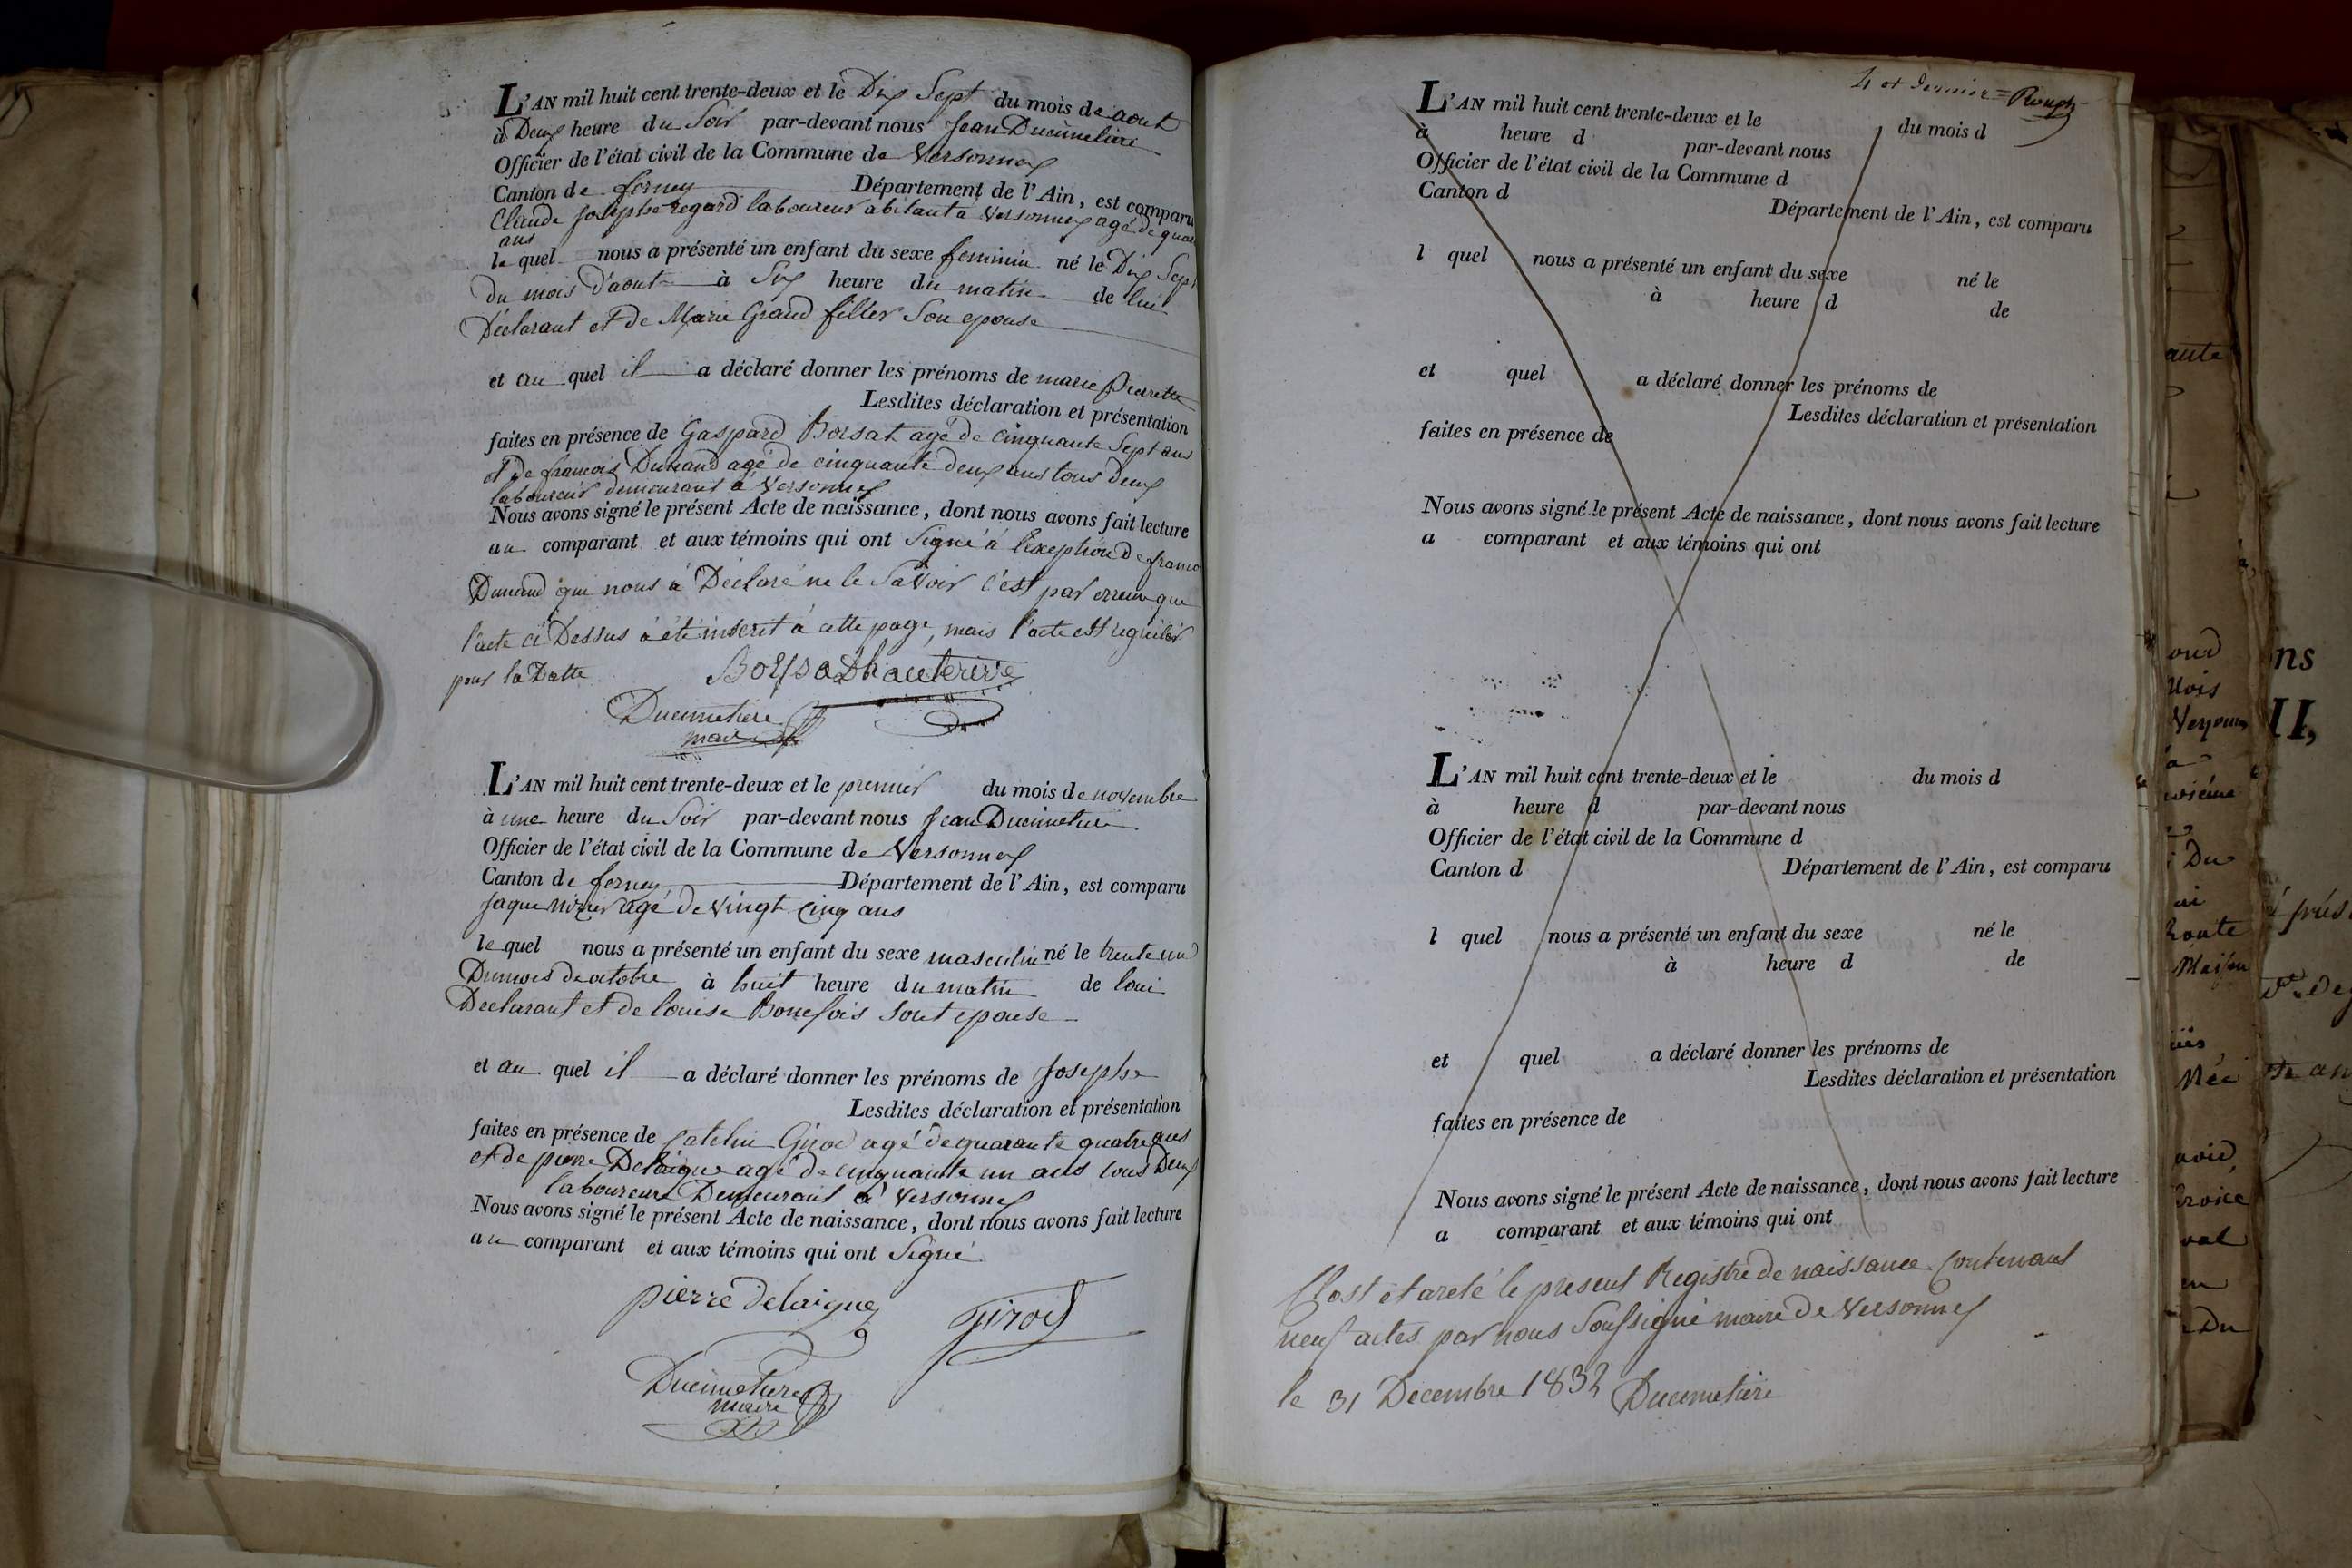 L'AN mil huit cent trente-deux et le Dix Sept du mois de aout
à Deux heure du Soir par-devant nous Jean Ducimetiere
Officier de l'état civil de la Commune de Versonnex
Canton de ferney Département de l'Ain, est comparu
Claude Josephe regard laboureur abitant a Versonnex agé de
ans
le quel nous a présenté un enfant du sexe feminin né le Dix Sept
Du mois d'aout à Six heure du matin de lui
Déclarant et de Marie Grand filler Son epouse
et au quel il a déclaré donner les prénoms de marie Pierrette
Lesdites déclaration et présentation
faites en présence de Gaspard Borsat agé de cinquante Sept ans
et De francois Dunand agé de cinquante deux ans tous deux
laboureur demeurant à Versonnex
Nous avons signé le présent Acte de naissance, dont nous avons fait lecture
au comparant et aux témoins qui ont Signé à l'exeption de
Dunand qui nous à Déclaré ne le Savoir c'est par erreur que
l'acte ci Dessus à été inseret à cette page, mais l'acte est
pour la Datte
Ducimetiere
maire
L'AN mil huit cent trente-deux et le premier du mois de novembre
à une heure du Soir par-devant nous Jean Ducimetiere
Officier de l'état civil de la Commune de Versonnex
Canton de ferney Département de l'Ain, est comparu
Jaque agé de vingt cinq ans
le quel nous a présenté un enfant du sexe masculin né le trente un
Du mois de octobre à huit heure du matin de loui
Declarant et de louise Bonefois Sont epouse
et au quel il a déclaré donner les prénoms de Josephe
Lesdites déclaration et présentation
faites en présence de Catelin Girod agé de quarante quatre ans
et de pierre Delaigue agé de cinquante un ans tous Deux
laboureurs Demeurant à Versonnex
Nous avons signé le présent Acte de naissance, dont nous avons fait lecture
au comparant et aux témoins qui ont Signé
pierre delaigue Girod
Ducimetiere
maire
4 et dernier =
L'AN mil huit cent trente-deux et le du mois d
à heure d par-devant nous
Officier de l'état civil de la Commune d
Canton d Département de l'Ain, est comparu
l quel nous a présenté un enfant du sexe né le
à heure d de
et quel a déclaré donner les prénoms de
Lesdites déclaration et présentation
faites en présence de
Nous avons signé le présent Acte de naissance, dont nous avons fait lecture
a comparant et aux témoins qui ont
L'AN mil huit cent trente-deux et le du mois d
à heure d par-devant nous
Officier de l'état civil de la Commune d
Canton d Département de l'Ain, est comparu
l quel nous a présenté un enfant du sexe né le
à heure d de
et quel a déclaré donner les prénoms de
Lesdites déclaration et présentation
faites en présence de
Nous avons signé le présent Acte de naissance, dont nous avons fait lecture
a comparant et aux témoins qui ont
Clost et areté le present Registre de naissance Contenant
neuf actes par nous Soussigné maire de Versonnex
le 31 Decembre 1832 Ducimetiere